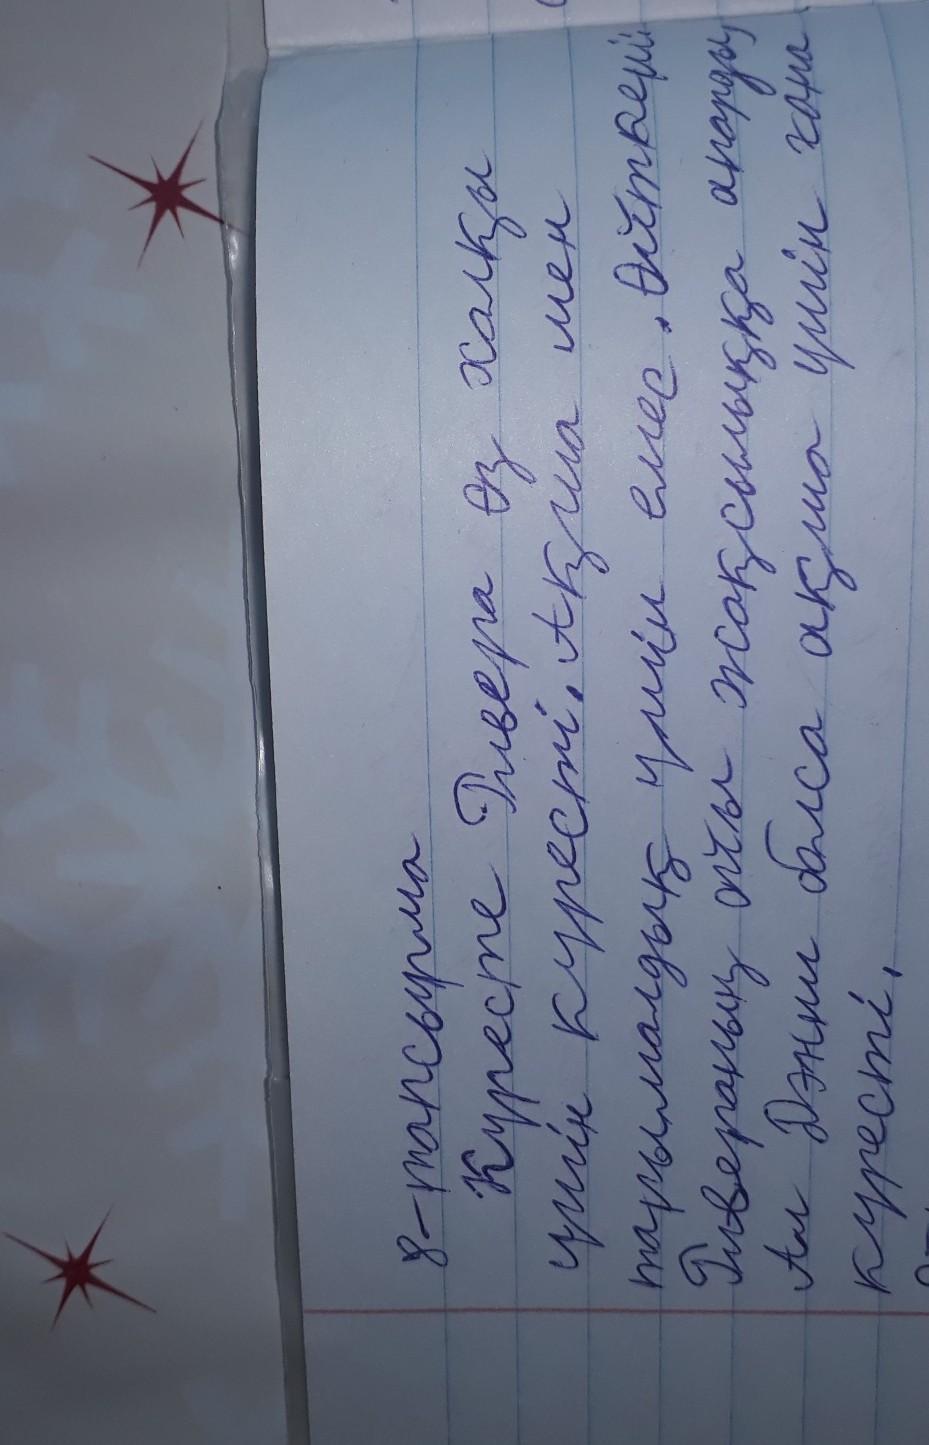 8-тапсырма
Күресте Ривера өз халқы
үшін күресті. Ақша мен
тарымалдық үшін емес. Өйткені
Ривераның ойы жақсылыққа апарды
Ал Дэнни болса ақша үшін ғана
күресті.